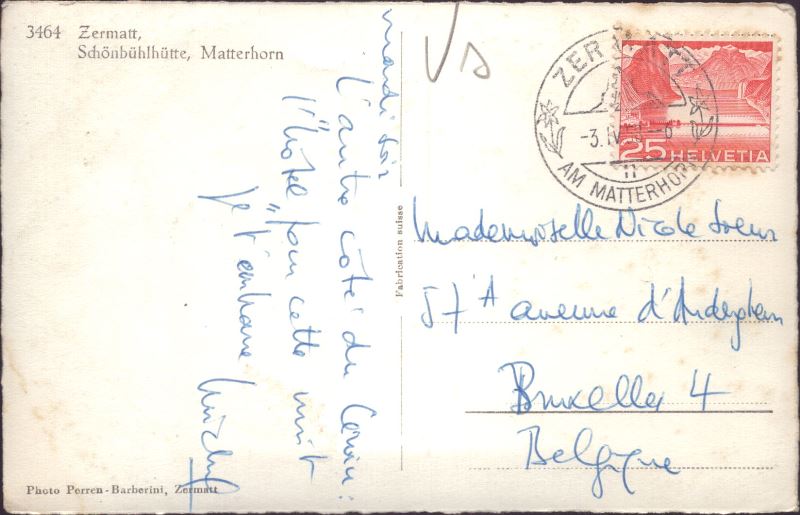 3464 Zermatt,
Schönbühlhütte, Matterhorn
mardi soir
L'autre côté du Cervin:
l'"hôtel" pour cette nuit
je t'embrasse
Michel
Photo Perren-Barberini, Zermatt
Fabrication suisse
ZERMATT
-3.IV.5 -6
11
AM MATTERHORN
25 HELVETIA
Mademoiselle Nicole
57A avenue d'
Bruxelles 4
Belgique